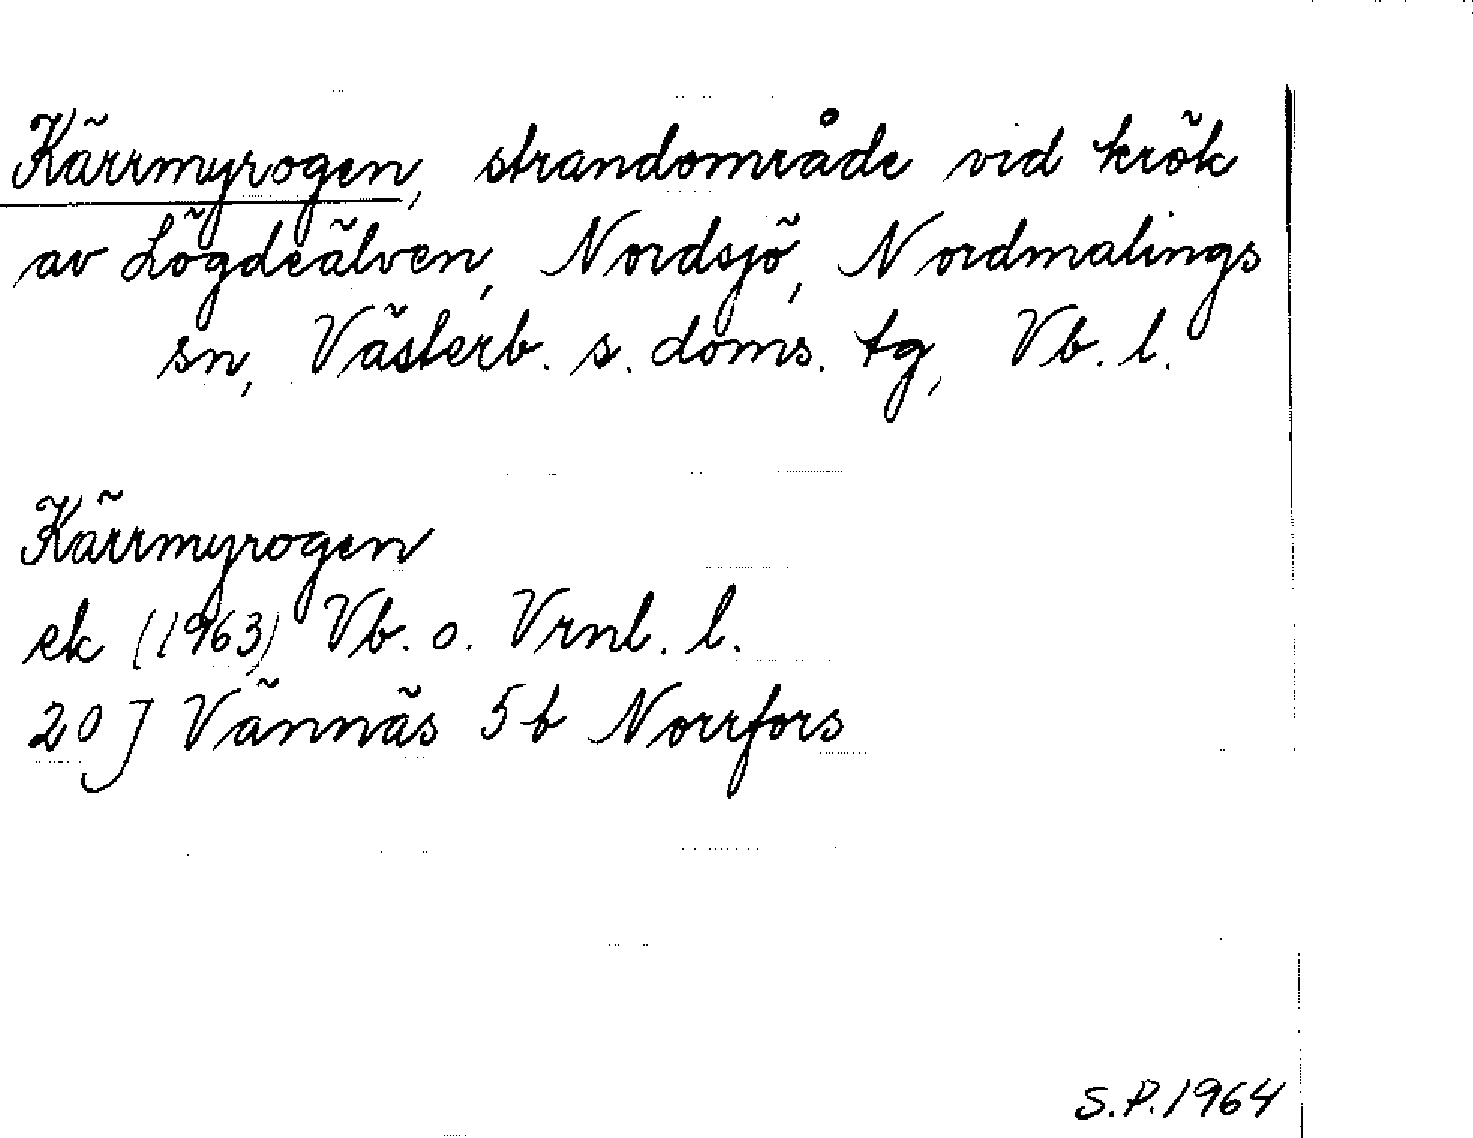 Kärrmyrogen, strandområde vid krök
av Lögdeälven, Nordsjö, Nordmalings
sn, Västerb. s. doms. tg, Vb. l.
Kärrmyrogen
ek (1963) Vb. o. Vrnl. l.
20 J Vännäs 5 b Norrfors
S.P. 1964